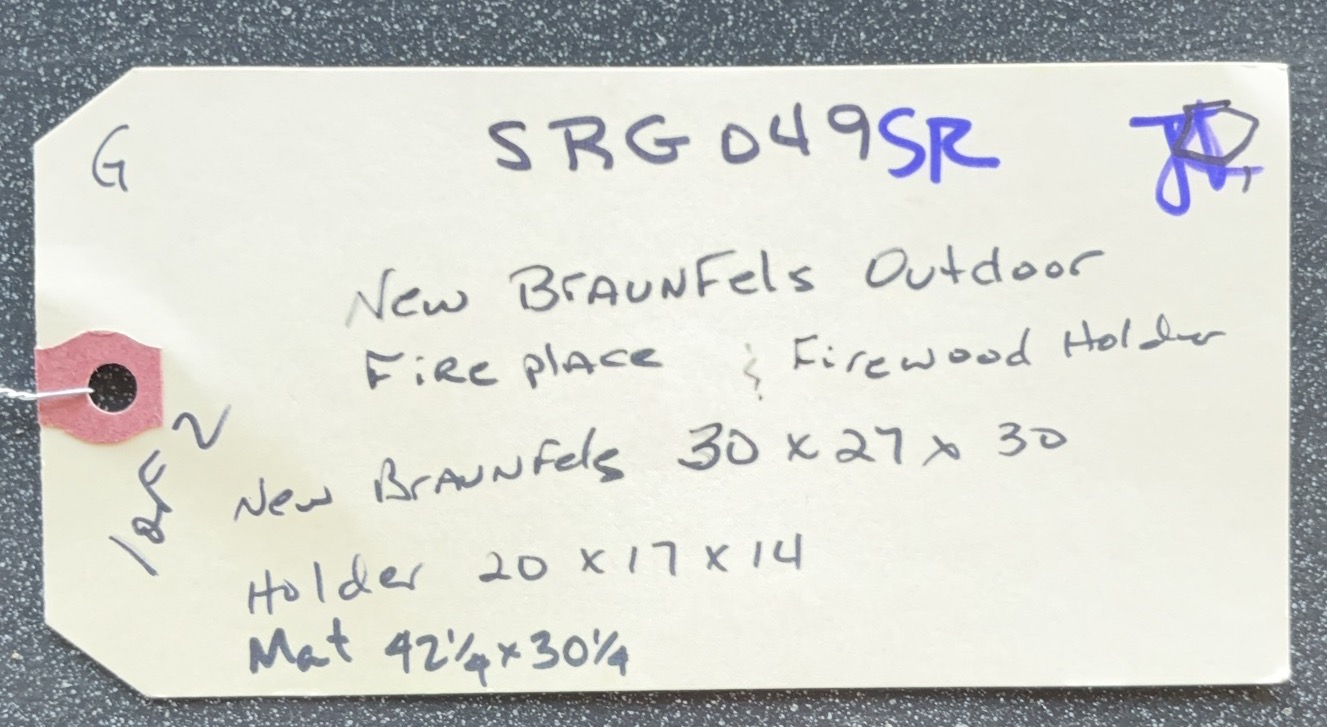 G
SRG 049 SR
New Braunfels Outdoor
Fireplace & Firewood Holder
New Braunfels 30 x 27 x 30
1 of 2
Holder 20 x 17 x 14
Mat 42 1/4 x 30 1/4